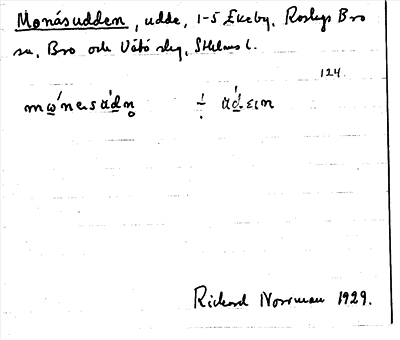 Monåsudden, udde, 1-5 Ekeby, Roslags Bro
sn, Bro och Vätö slg, Sthlms l.
124.
mώnɛsʌ́dn̥ ÷ ʌ́dɛın
Rickard Norrman 1929.